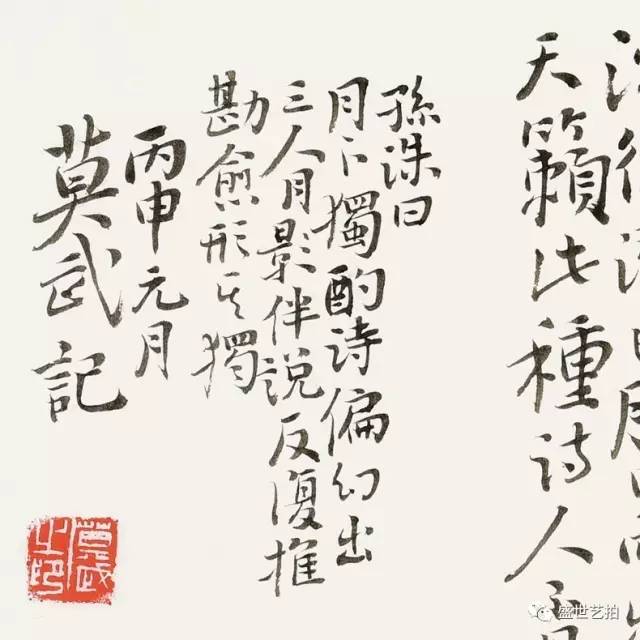 天籟此種詩人
孫洙曰
月下獨酌詩偏幻出
三人月影伴說反復推
勘愈形其獨
丙申元月
莫武記
莫武之印
盛世艺拍